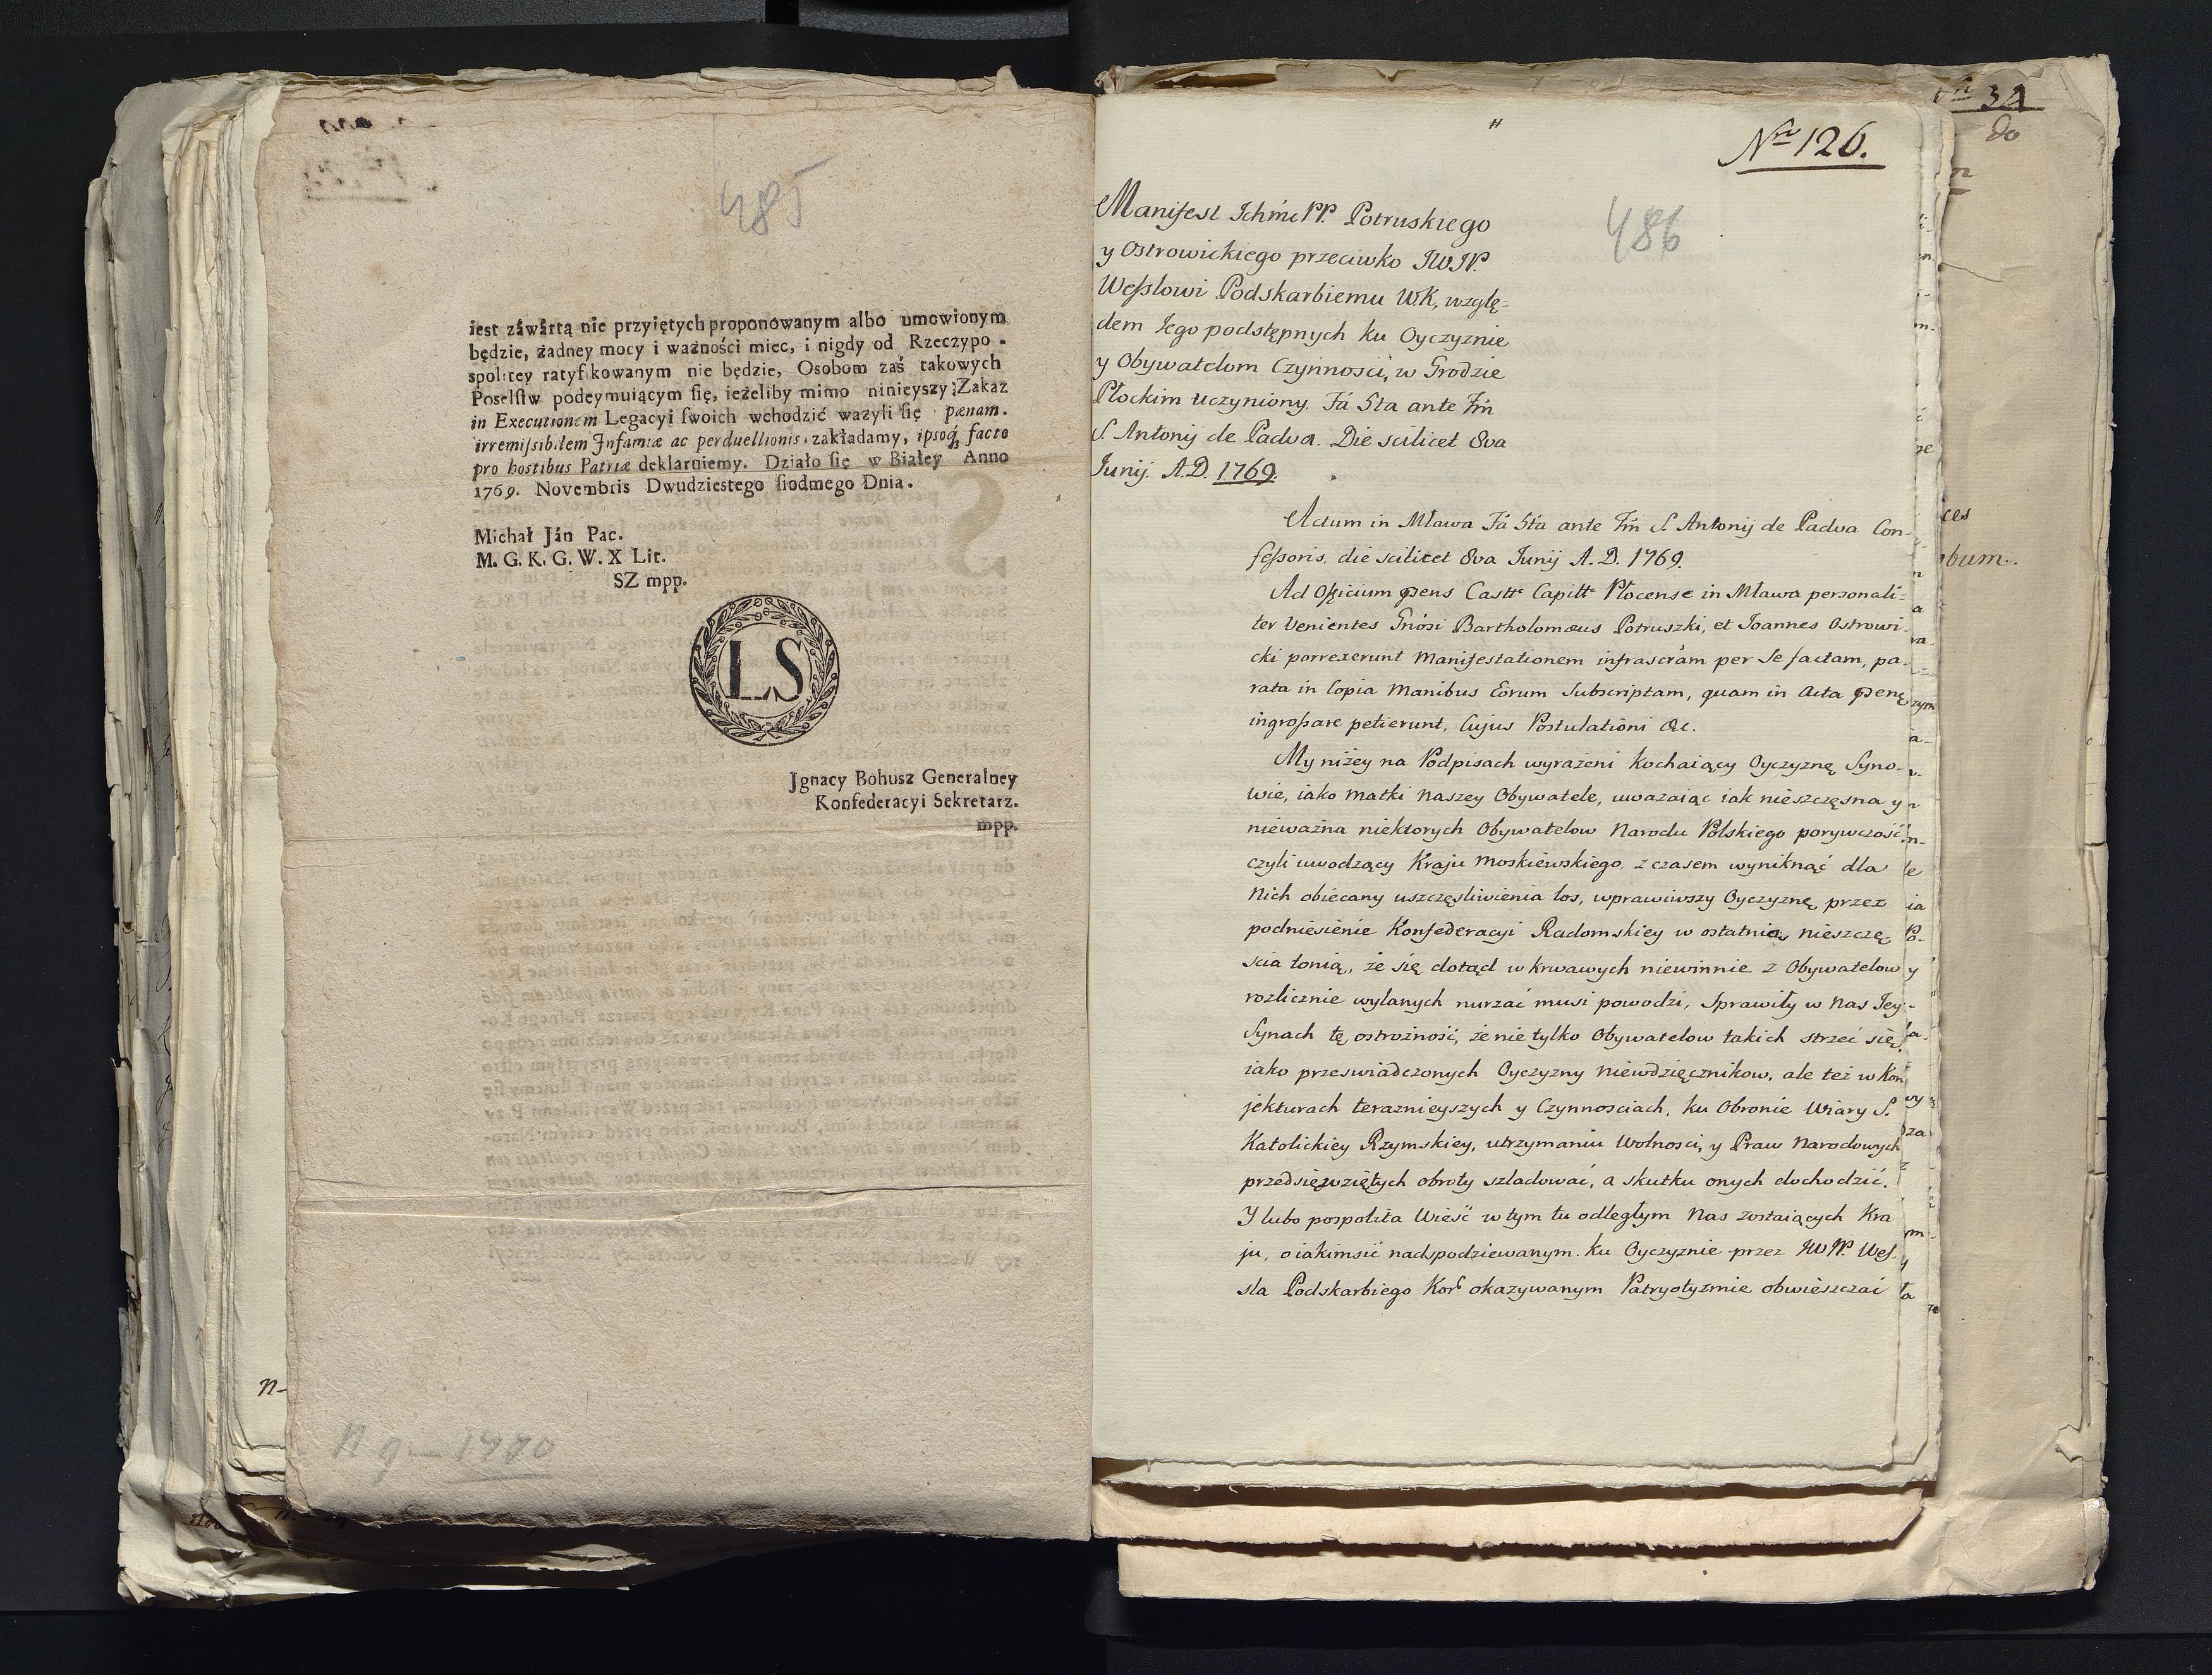 485
iest záwártą nie przyiętych proponowanym albo umowionym
będzie, żadney mocy i ważności miec, i nigdy od Rzeczypo-
spolitey ratyfikowanym nie będzie, Osobom zaś takowych
Poselstw podeymuiącym się, ieżeliby mimo ninieyszy Zakaz
in Executionem Legacyi swoich wchodzić ważyli się pænam.
irremissibilem Infamiæ ac perduellionis zakładamy, ipsoq́ facto
pro hostibus Patriæ deklaruiemy. Działo się w Białey Anno
1769. Novembris Dwudziestego siodmego Dnia.
Michał Ján Pac.
M. G. K. G. W. X Lit.
SZ mpp.
LS
Jgnacy Bohusz Generalney
Konfederacyi Sekretarz.
mpp.
1770
Nro 126.
486
Manifest Ichmc PP. Potruskiego
y Ostrowickiego przeciwko JWJP.
Wesslowi Podskarbiemu W.K, wzglę=
dem Jego podstępnych ku Oyczyznie
y Obywatelom Czynnosci, w Grodzie
Płockim uczyniony. Fá 5ta ante Fm
S. Antonij de Padva. Die scilicet 8va
Junij. A.D. 1769.
Actum in Mława Fá 5ta ante Fm S. Antonij de Padva Con-
fessoris, die scilicet 8va Junij A. D. 1769.
Ad Officium pens Castre Capitle Płocense in Mława personali=
ter Venientes Gnosi Bartholomæus Potruszki, et Joannes Ostrowi-
cki porrexerunt Manifestationem infrascram per Se factam, pa-
rata in Copia Manibus Eorum Subscriptam, quam in Acta pens
ingrossare petierunt, Cujus Postulationi &c.
My niżey na Podpisach wyrażeni kochaiący Oyczyznę Syno-
wie, iako Matki Naszey Obywatele, uważaiąc iak nieszczęsna y
nieważna niektorych Obywatelow Narodu Polskiego porywczość
czyli uwodzący Kraju Moskiewskiego, z czasem wyniknąć dla
Nich obiecany uszczęsliwienia los, wprawiwszy Oyczyznę przez
podniesienie Konfederacyi Radomskiey w ostatnią nieszczę
scia tonią, że się dotąd w krwawych niewinnie z Obywatelow
rozlicznie wylanych nurzać musi powodzi, Sprawiły w Nas Jey
Synach tę ostrożność, że nie tylko Obywatelow takich strzec się,
iako przeswiadczonych Oyczyzny Niewdzięcznikow, ale też w Kon
jekturach teraznieyszych y Czynnosciach, ku Obronie Wiary S.
Katolickiey Rzymskiey, utrzymaniu Wolnosci, y Praw Narodowych
przedsięwziętych obroty szladować, a skutku onych dochodzić.
Y lubo pospolita Wieść w tym tu odległym Nas zostaiących Kra
ju, o iakimsić nadspodziewanym ku Oyczyznie przez JWJP. Wes-
sla Podskarbiego Kor okazywanym Patryotyzmie obwieszczać
34